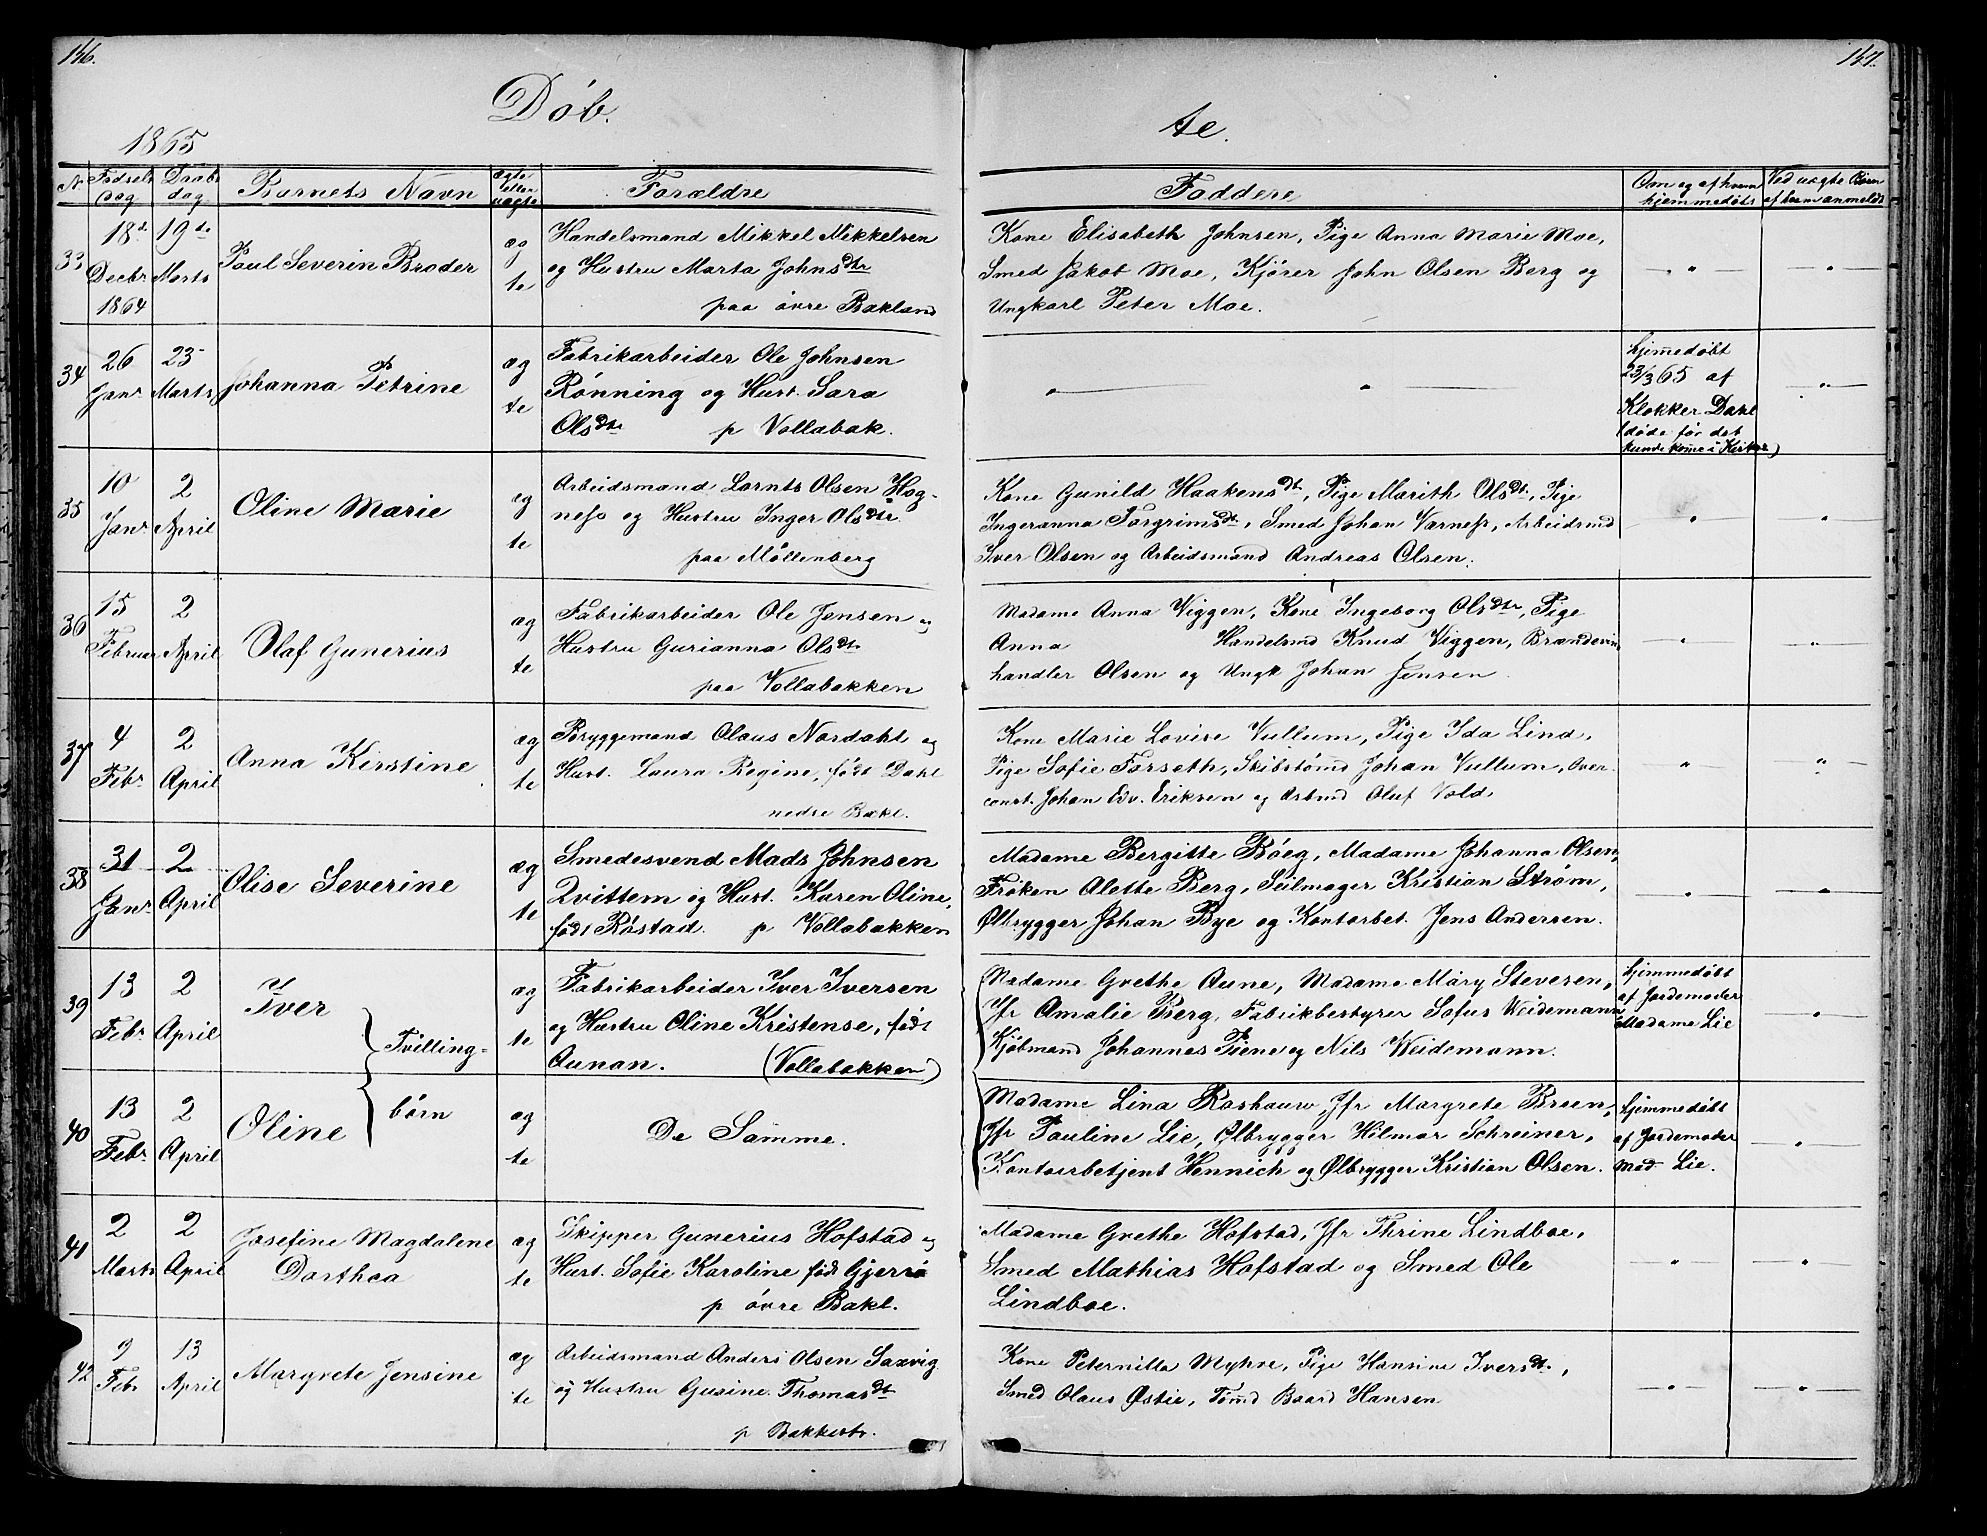 146.
147.
Døb.
te.
1865
N. Fødsels dag Daabs dag Barnets Navn Ægte eller uægte Forældre Faddere Om og af hvem hjemmedøbt Ved uægte Børn af hvem anmeldt
33 18de Decbr 1864 19de Marts Paul Severin Broder ægte
Handelsmand Mikkel Mikkelsen
og Hustru Marta Johnsdtr
paa øvre Bakland
Kone Elisabeth Johnsen, Pige Anna Marie Moe,
Smed Jakob Moe, Kjører John Olsen Berg og
Ungkarl Peter Moe.
34 26 Janr 23 Marts Johanna Petrine ægte
Fabrikarbeider Ole Johnsen
Rønning og Hust. Sara
Olsdtr p Vollabak.
hjemedøbt
23/3 65 af
Klokker Dahl
(døde før det
kunde kome i Kirken)
35 10 Janr 2 April Oline Marie ægte
Arbeidsmand Lornts Olsen Hog-
ness og Hustru Inger Olsdtr.
paa Møllenberg
Kone Gunild Haakensdt, Pige Marith Olsdt, Pige
Ingeranna Torgrimsdt, Smed Johan Varness, Arbeidsmd
Iver Olsen og Arbeidsmand Andreas Olsen.
36 15 Februar 2 April Olaf Gunerius ægte
Fabrikarbeider Ole Jensen og
Hustru Gurianna Olsdtr
paa Vollabakken
Madame Anna Viggen, Kone Ingeborg Olsdtr, Pige
Anna Handelsmd Knud Viggen, Brændevin
handler Olsen og Ungk Johan Jensen.
37 4 Febr 2 April Anna Kirstine ægte
Bryggemand Olaus Nordahl og
Hust. Laura Regine, født Dahl
nedre Bakl.
Kone Marie Lovise Vullum, Pige Ida Lind,
Pige Sofie Forseth, Skibstømd Johan Vullum, Over
const. Johan Edv. Eriksen og Arbmd Oluf Vold.
38 31 Janr 2 April Olise Severine ægte
Smedesvend Mads Johnsen
Qvittem og Hust. Karen Oline,
født Røstad. p Vollabakken
Madame Bergitte Bøeg, Madame Johanna Olsen,
Frøken Alette Berg, Seilmager Kristian Strøm,
Ølbrygger Johan Bye og Kontorbet. Jens Andersen.
39 13 Febr 2 April Iver ægte
Tvilling-
børn
Fabrikarbeider Iver Iversen
og Hustru Oline Kristense, født
Aunan. (Vollabakken)
Madame Grethe Aune, Madame Mary Steversen,
Jfr Amalie Berg, Fabrikbestyrer Sofus Weidemann
Kjøbmand Johannes Fiene og Nils Weidemann.
hjemmedøbt
af Jordemoder
Madame Lie
40 13 Febr. 2 April Oline ægte
De Samme.
Madame Lina Roshauw, Jfr Margrete Breen,
Jfr Pauline Lie, Ølbrygger Hilmar Schreiner,
Kontorbetjent Hennich og Ølbrygger Kristian Olsen.
hjemmedøbt
af Jordemoder
Mad. Lie.
41 2 Marts 2 April Josefine Magdalene
Dorthea ægte
Skipper Gunerius Hofstad og
Hust. Sofie Karoline født Gjerrø
p øvre Bakl.
Madame Grethe Hofstad, Jfr Thrine Lindboe,
Smed Mathias Hofstad og Smed Ole
Lindboe.
42 9 Febr 13 April Margrete Jensine ægte
Arbeidsmand Anders Olsen Saxvig
og Hustru Gusine Thomasdt
p Bakkestr.
Kone Peternilla Myhre, Pige Hansine Iversdt.,
Smed Olaus Østie, Tømd Baard Hansen